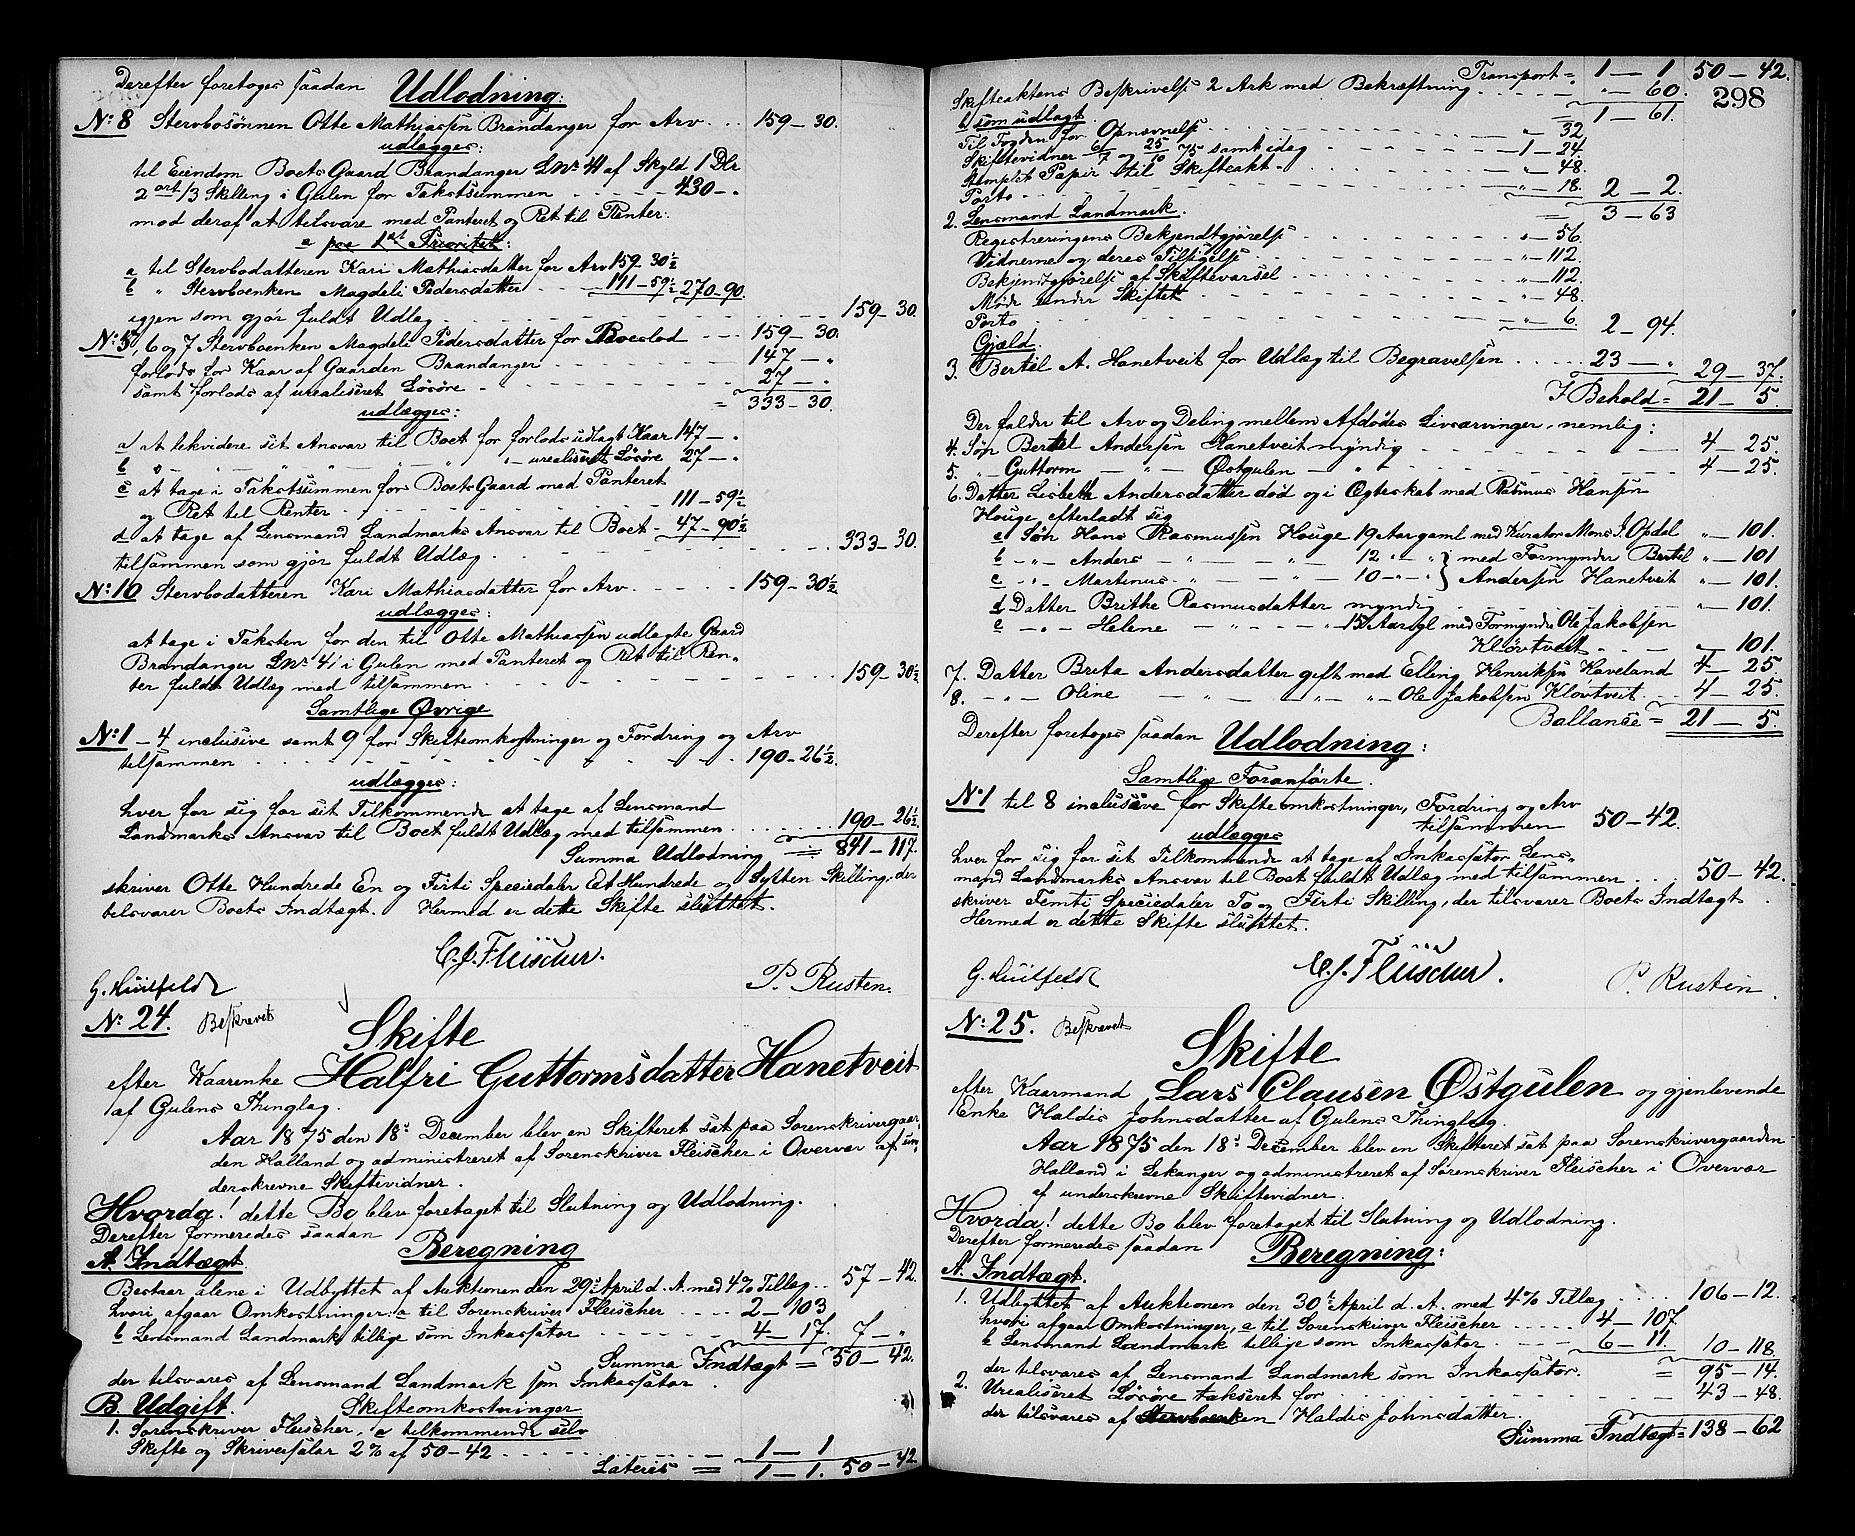 Derefter foretoges saadan Udlodning:
No 8 Stervbosønnen Otte Mathiassen Brandanger for Arv . . 159 – 30.
udlægges:
til Eiendom Boets Gaard Brandanger LNr 41 af Skyld 1 Dlr
2 ort 13 Skilling i Gulen for Takstsummen - - - - 430 – „
mod deraf at tilsvare med Panteret og Ret til Renter:
a paa 1st Prioritet:
a til Stervbodatteren Kari Mathiasdatter for Arv 159 – 30½
b „ Stervboenken Magdeli Pedersdatter - - 111 – 59½ 270 – 90.
igjen som gjør fuldt Udlæg - - - - 159 – 30.
No 5, 6 og 7 Stervboenken Magdeli Pedersdatter for Boeslod - - 159 – 30.
forlods for Kaar af Gaarden Brandanger - - - 147 – „
samt forlods af urealiseret Løsøre - - - - 27 – „
= 333 – 30.
udlægges:
a at likvidere sit Ansvar til Boet for forlods udlagt Kaar 147 – „
b „ - „ - „ - „ - „ urealiseret Løsøre 27 – „
c at tage i Takstsummen for Boets Gaard med Panteret
og Ret til Renter - - - - 111 – 59½
d at tage af Lensmand Landmarks Ansvar til Boet - 47 – 90½
tilsammen som gjør fuldt Udlæg - - - - 333 – 30.
No 10 Stervbodatteren Kari Mathiasdatter for Arv - - - - 159 – 30½
udlægges:
at tage i Taksten for den til Otte Mathiassen udlagte Gaard
Brandanger LNr 41 i Gulen med Panteret og Ret til Ren-
ter fuldt Udlæg med tilsammen - - - - 159 – 30½
Samtlige Øvrige
No 1 – 4 inclusive samt 9 for Skifteomkostninger og Fordring og Arv
tilsammen - - - - 190 – 26½
udlægges:
hver for sig for sit Tilkommende at tage af Lensmand
Landmarks Ansvar til Boet fuldt Udlæg med tilsammen - - - 190 – 26½
Summa Udlodning = 841 – 117.
skriver Otte Hundrede En og Firti Speciedaler Et Hundrede og Sytten Skilling, der
tilsvarer Boets Indtægt. Hermed er dette Skifte sluttet.
C. J. Fleischer.
G. Huitfeldt P. Rusten.
No 24. Beskrevet
Skifte
efter Kaarenke Halfri Guttormsdatter Hanetveit
af Gulens Thinglag.
Aar 1875 den 18de December blev en Skifteret sat paa Sorenskrivergaar-
den Halland og administreret af Sorenskriver Fleischer i Overvær af un-
derskrevne Skiftevidner.
Hvorda! dette Bo blev foretaget til Slutning og Udlodning.
Derefter formeredes saadan Beregning
A. Indtægt
Bestaar alene i Udbyttet af Auktionen den 29de April d. A. med 4% Tillæg . . 57 – 42.
hvori afgaar Omkostninger: a til Sorenskriver Fleischer - - - - 2 – 103
b Lensmand Landmark tillige som Inkassator - - - - 4 – 17. 7 – „
Summa Indtægt = 50 – 42.
der tilsvares af Lensmand Landmark som Inkassator.
B. Udgift. Skifteomkostninger
1. Sorenskriver Fleischer, a tilkommende selv
Skifte og Skriversalær 2% af 50 – 42 - - - - 1 – 1
Lateris = 1 – 1. 50 – 42.
Transport = 1 – 1 50 – 42.
298
Skifteaktens Beskrivelse 2 Ark med Bekræftning - - - - „ – 60.
1 – 61.
b som udlagt.
Til Fogden for Opnævnelse - - - - „ – 32
Skiftevidner 6/7 - 25/10 75 samt idag - - - - 1 – 24.
Stemplet Papir til Skifteakt - - - - „ – 48.
Porto - - - - „ – 18. 2 – 2.
= 3 – 63
2. Lensmand Landmark.
Registreringens Bekjendtgjørelse - - - - „ – 56.
Vidnerne og deres Tilsigelse - - - - „ – 112.
Bekjendtgjørelse af Skiftevarsel - - - - „ – 112
Møde under Skiftet - - - - „ – 48.
Porto - - - - „ – 6. 2 – 94.
Gjæld.
3. Bertel A. Hanetveit for Udlæg til Begravelsen - - - - 23 – „ 29 – 37.
I Behold = 21 – 5.
Der falder til Arv og Deling mellem Afdødes Livsarvinger, nemlig:
4. Søn Bertel Andersen Hanetveit myndig - - - - 4 – 25.
5. „ Guttorm – „ – Østgulen – „ - - - - 4 – 25
6. Datter Lisbeth Andersdatter død og i Ægteskab med Rasmus Hansen
Houge efterladt sig
a Søn Hans Rasmussen Houge 19 Aar gaml med Kurator Mons J. Opdal „ – 101.
b - „ - Anders – „ – „ 12 „ „ } med Formynder Bertel „ – 101
c - „ - Martinus – „ – „ 10 „ „ } Andersen Hanetveit „ – 101.
d Datter Brithe Rasmusdatter myndig - - - - „ – 101.
e - „ - Helene – „ – „ 15 Aar gl med Formynder Ole Jakobsen
Kløvtveit - - - - „ – 101.
7. Datter Brita Andersdatter gift med Elling Henriksen Haveland 4 – 25
8. - „ - Oline – „ – „ – „ Ole Jakobsen Kløvtveit - - 4 – 25.
Ballance = 21 – 5.
Derefter foretoges saadan Udlodning:
Samtlige Foranførte.
No 1 til 8 inclusive for Skifteomkostninger, Fordring og Arv
tilsammen 50 – 42.
udlægges
hver for sig for sit Tilkommende at tage af Inkassator Lens-
mand Landmarks Ansvar til Boet fuldt Udlæg med tilsammen - - 50 – 42.
skriver Femti Speciedaler To og Firti Skilling, der tilsvarer Boets Indtægt.
Hermed er dette Skifte sluttet.
C. J. Fleischer.
G. Huitfeldt P. Rusten.
No 25. Beskrevet
Skifte
efter Kaarmand Lars Clausen Østgulen og gjenlevende
Enke Haldis Johnsdatter af Gulens Thinglag.
Aar 1875 den 18de December blev en Skifteret sat paa Sorenskrivergaarden
Halland i Lekanger og administreret af Sorenskriver Fleischer i Overvær
af underskrevne Skiftevidner.
Hvorda! dette Bo blev foretaget til Slutning og Udlodning.
Derefter formeredes saadan Beregning:
A. Indtægt.
1. Udbyttet af Auktionen den 30te April d. A. med 4% Tillæg - - - - 106 – 12.
hvori afgaar Omkostninger, a til Sorenskriver Fleischer - - - - 4 – 107.
b Lensmand Landmark tillige som Inkassator - - - - 6 – 11. 10 – 118.
der tilsvares af Lensmand Landmark som Inkassator. = 95 – 14.
2. Urealiseret Løsøre takseret for - - - - 43 – 48.
der tilsvares af Stervboenken Haldis Johnsdatter.
Summa Indtægt = 138 – 62